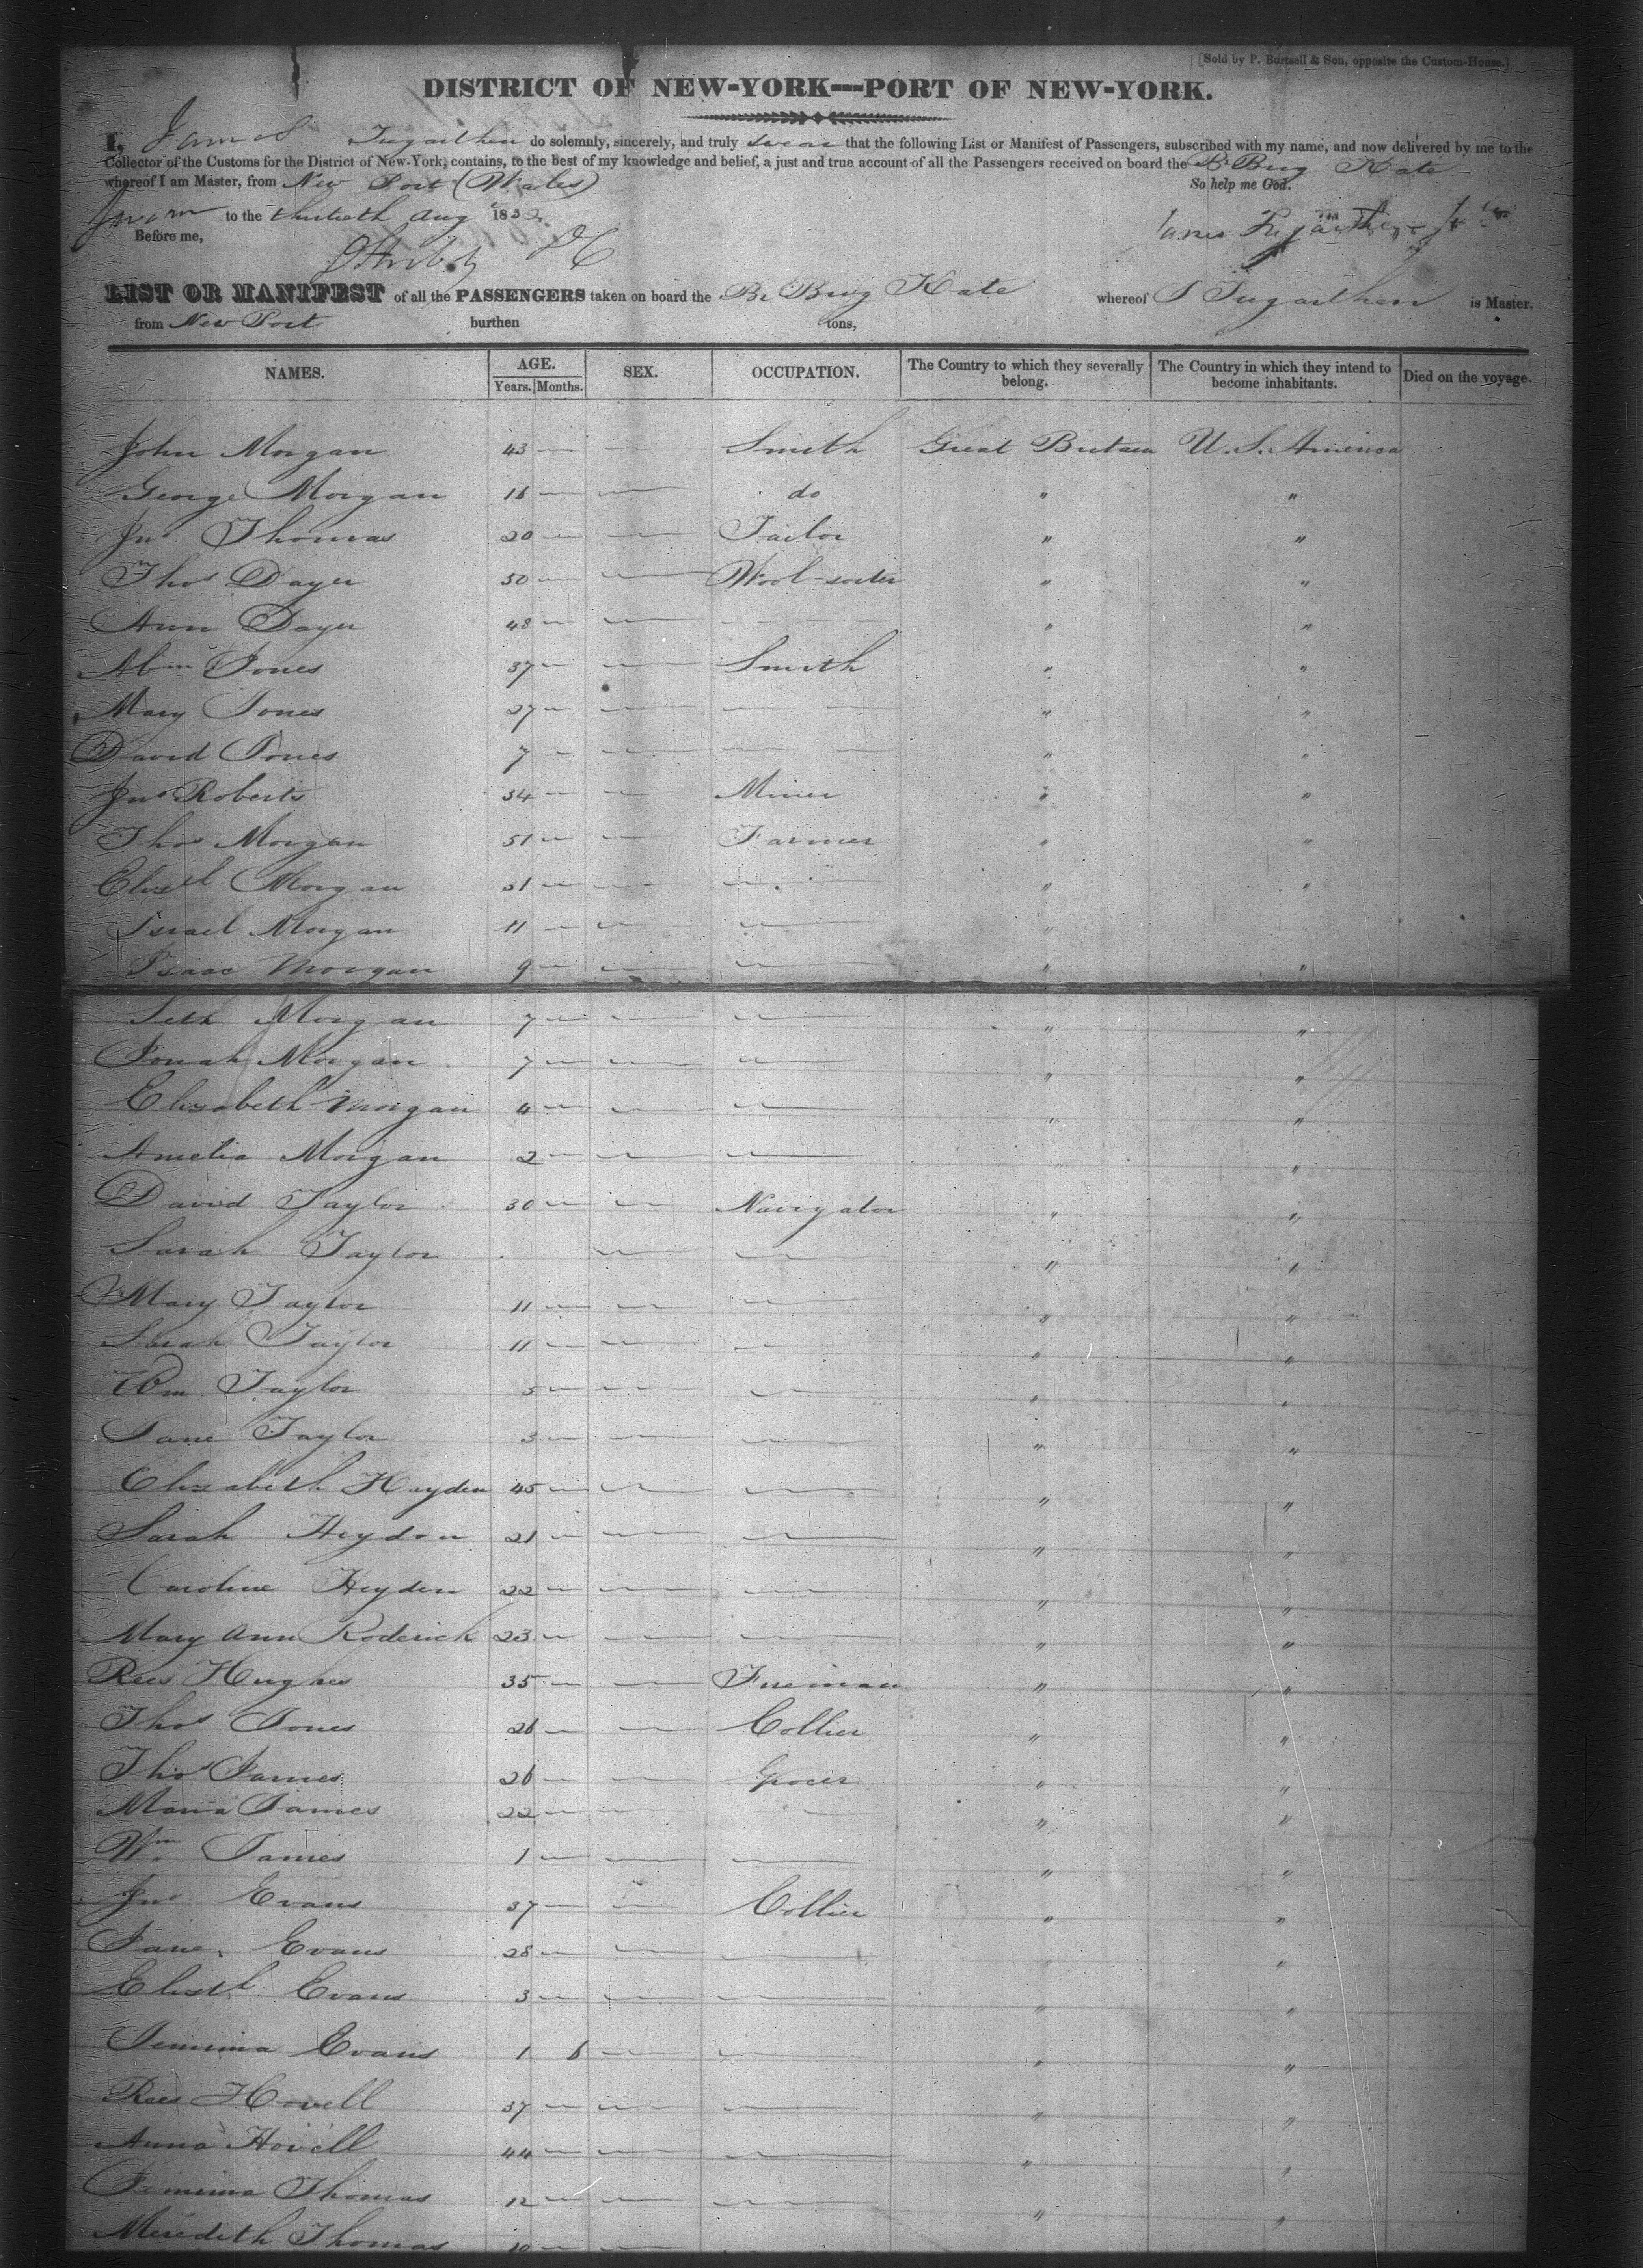 [Sold by P. Burtsell & Son, opposite the Custom-House.]
DISTRICT OF NEW-YORK---PORT OF NEW-YORK.
I, James Tregarthen do solemnly, sincerely, and truly swear that the following List or Manifest of Passengers, subscribed with my name, and now delivered by me to the
Collector of the Customs for the District of New-York, contains, to the best of my knowledge and belief, a just and true account of all the Passengers received on board the Br Brig Kate
whereof I am Master, from New Port (Wales) So help me God.
Sworn to the thirtieth Aug 1832
Before me,
James Tregarthen Jr
DC
LIST OR MANIFEST of all the PASSENGERS taken on board the Br Brig Kate whereof J Tregarthen is Master,
from New Port burthen tons,
NAMES. AGE. SEX. OCCUPATION. The Country to which they severally belong. The Country in which they intend to become inhabitants. Died on the voyage.
Years. Months.
John Morgan 43 — — Smith Great Britain U. S. America
George Morgan 16 — — do " "
Jno Thomas 20 — — Tailor " "
Thos Dayer 50 — — Wool-sorter " "
Ann Dayer 48 — — — " "
Abm Jones 37 — — Smith " "
Mary Jones 27 — — — " "
David Jones 7 — — — " "
Jno Roberts 34 — — Miner " "
Thos Morgan 51 — — Farmer " "
Elizth Morgan 31 — — — " "
Israel Morgan 11 — — — " "
Isaac Morgan 9 — — — " "
Seth Morgan 7 — — — " "
Jonah Morgan 7 — — — " "
Elizabeth Morgan 4 — — — " "
Amelia Morgan 2 — — — " "
David Taylor 30 — — Navigator " "
Sarah Taylor — — " "
Mary Taylor 11 — — — " "
Sarah Taylor 11 — — — " "
Wm Taylor 5 — — — " "
Jane Taylor 3 — — — " "
Elizabeth Hayden 45 — — — " "
Sarah Heyden 21 — — — " "
Caroline Heyden 22 — — — " "
Mary Ann Roderick 23 — — — " "
Rees Hughes 35 — — Fireman " "
Thos Jones 26 — — Collier " "
Thos James 26 — — Grocer " "
Maria James 22 — — — " "
Wm James 1 — — — " "
Jno Evans 37 — — Collier " "
Jane Evans 28 — — — " "
Elizth Evans 3 — — — " "
Jemima Evans 1 6 — — " "
Rees Howell 37 — — — " "
Anna Howell 44 — — — " "
Jemima Thomas 12 — — — " "
Meredith Thomas 10 — — —